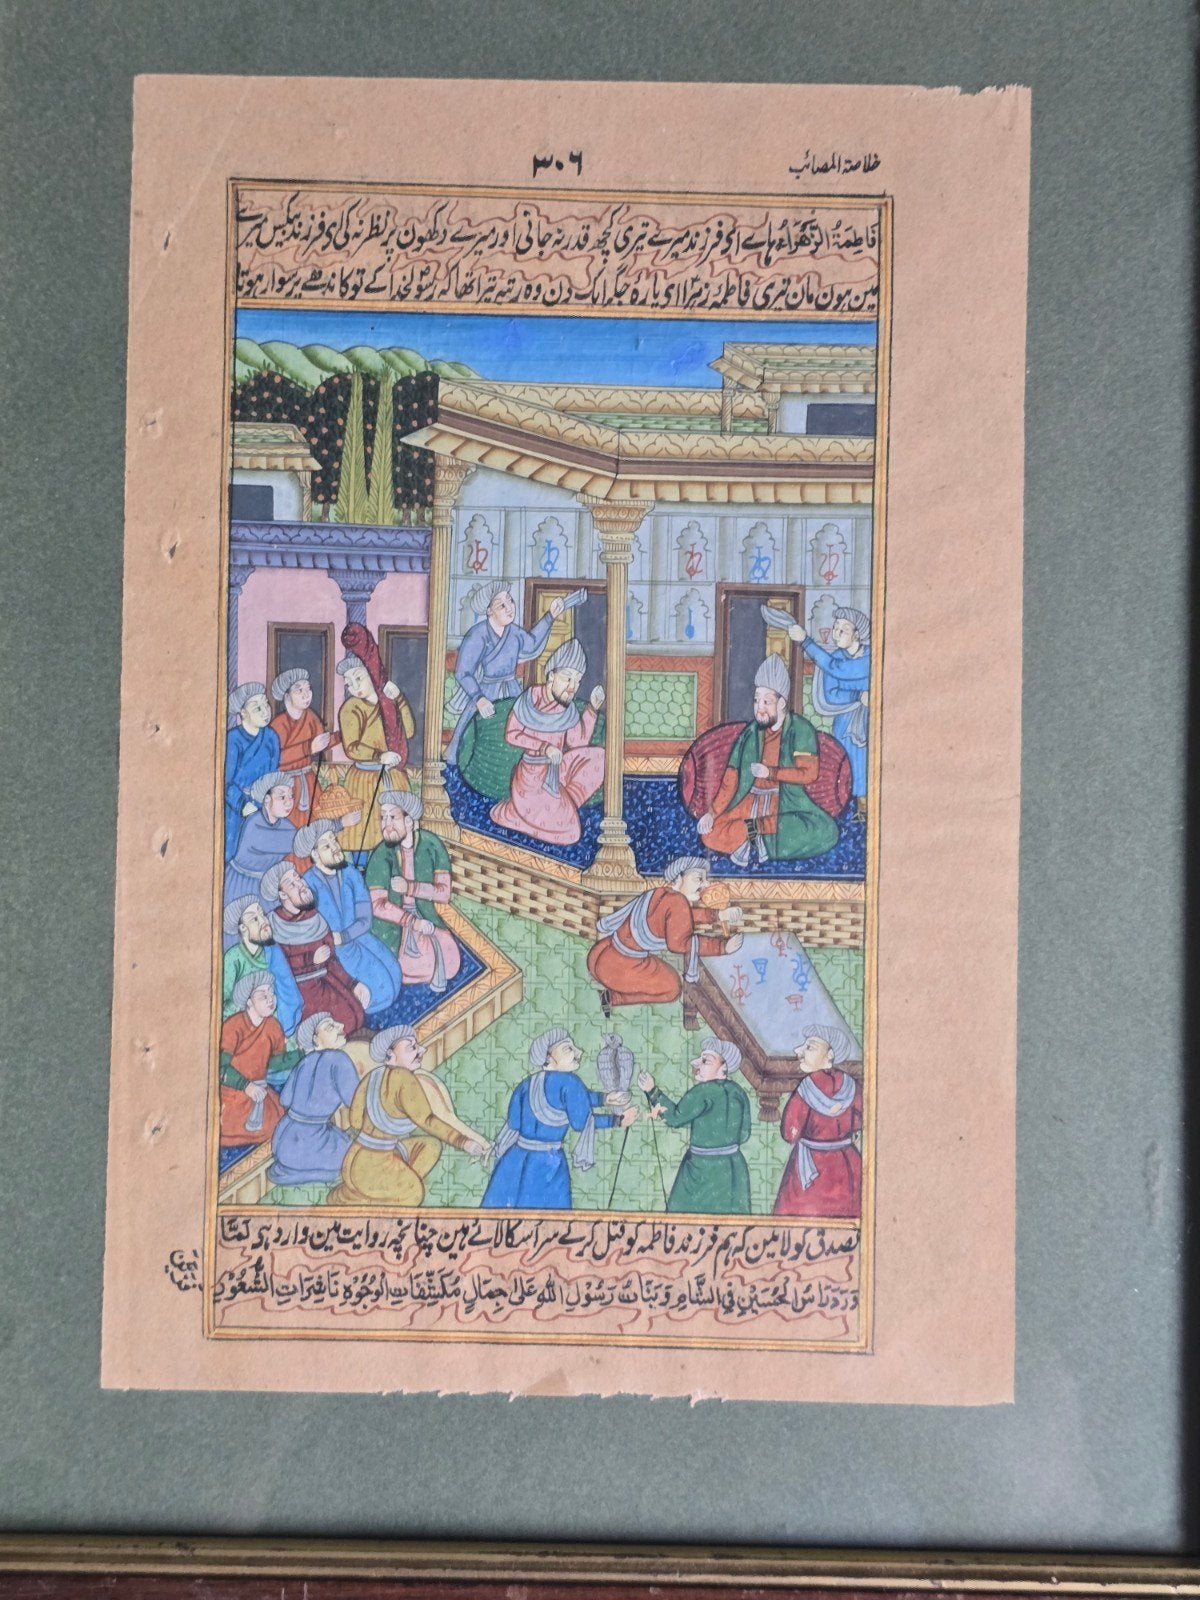 خلاصۃ المصائب
۳۰۶
فَاطِمَۃُ الزَّہْرَاءُ ہاے ای فرزند میرے تیری کچھ قدر نہ جانی اور میرے دکھون پر نظر نہ کی ای فرزند بیکس میرے
مین ہون مان تیری فاطمۂ زہرا ای پارۂ جگر ایک دن وہ رتبہ تیرا تھا کہ رسولخدا کے تو کاندھے پر سوار ہوتا
تصدق کو لایئن کہ ہم فرزند فاطمہ کو قتل کرکے سر اسکا لائے ہین چنانچہ روایت مین وارد ہی لَمَّا
وَرَدَ رَاسُ الْحُسَیْنِ فِی الشَّامِ وَبَنَاتُ رَسُوْلِ اللّٰہِ عَلٰی جِمَالٍ مُکَشَّفَاتِ الْوُجُوْہِ نَاشِرَاتِ الشُّعُوْرِ